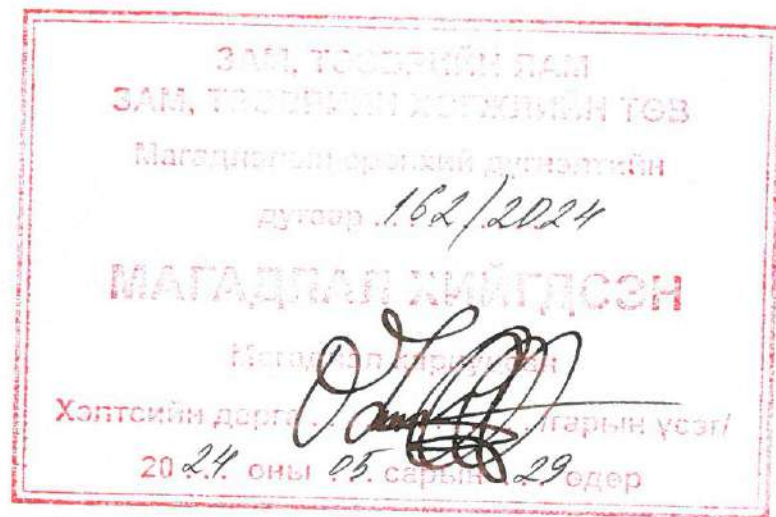 ЗАМ, ТЭЭВРИЙН ЯАМ
ЗАМ, ТЭЭВРИЙН ХӨГЖЛИЙН ТӨВ
Магадлалын ерөнхий дүгнэлтийн
дугаар 162/2024
МАГАДЛАЛ ХИЙГДСЭН
Магадлал хариуцсан
Хэлтсийн дарга ........ /гарын үсэг/
2024 оны 05 сарын 29 өдөр